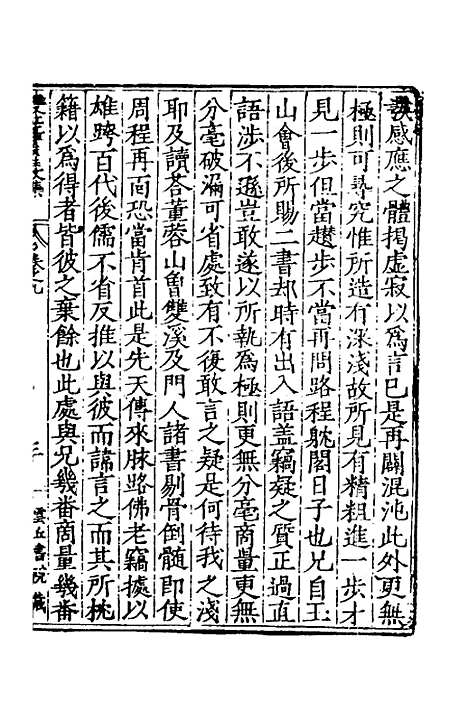 感應之體揭虛寂以為言已是再闢混沌此外更無
極則可尋究惟所造有深淺故所見有精粗進一步才
見一步但當趲步不當再問路程躭閣日子也兄自玉
山會後所賜二書却時有出入語盖竊疑之質正過直
語涉不遜豈敢遂以所執為極則更無分毫商量更無
分毫破漏可省處致有不復敢言之疑是何待我之淺
耶及讀荅董蓉山魯雙溪及門人諸書剔骨倒髓即使
周程再面恐當肯首此是先天傳來脉路佛老竊據以
雄跨百代後儒不省反推以與彼而諱言之而其所枕
籍以為得者皆彼之棄餘也此處與兄幾番商量幾番
文集
卷之九
三
雲丘書院藏